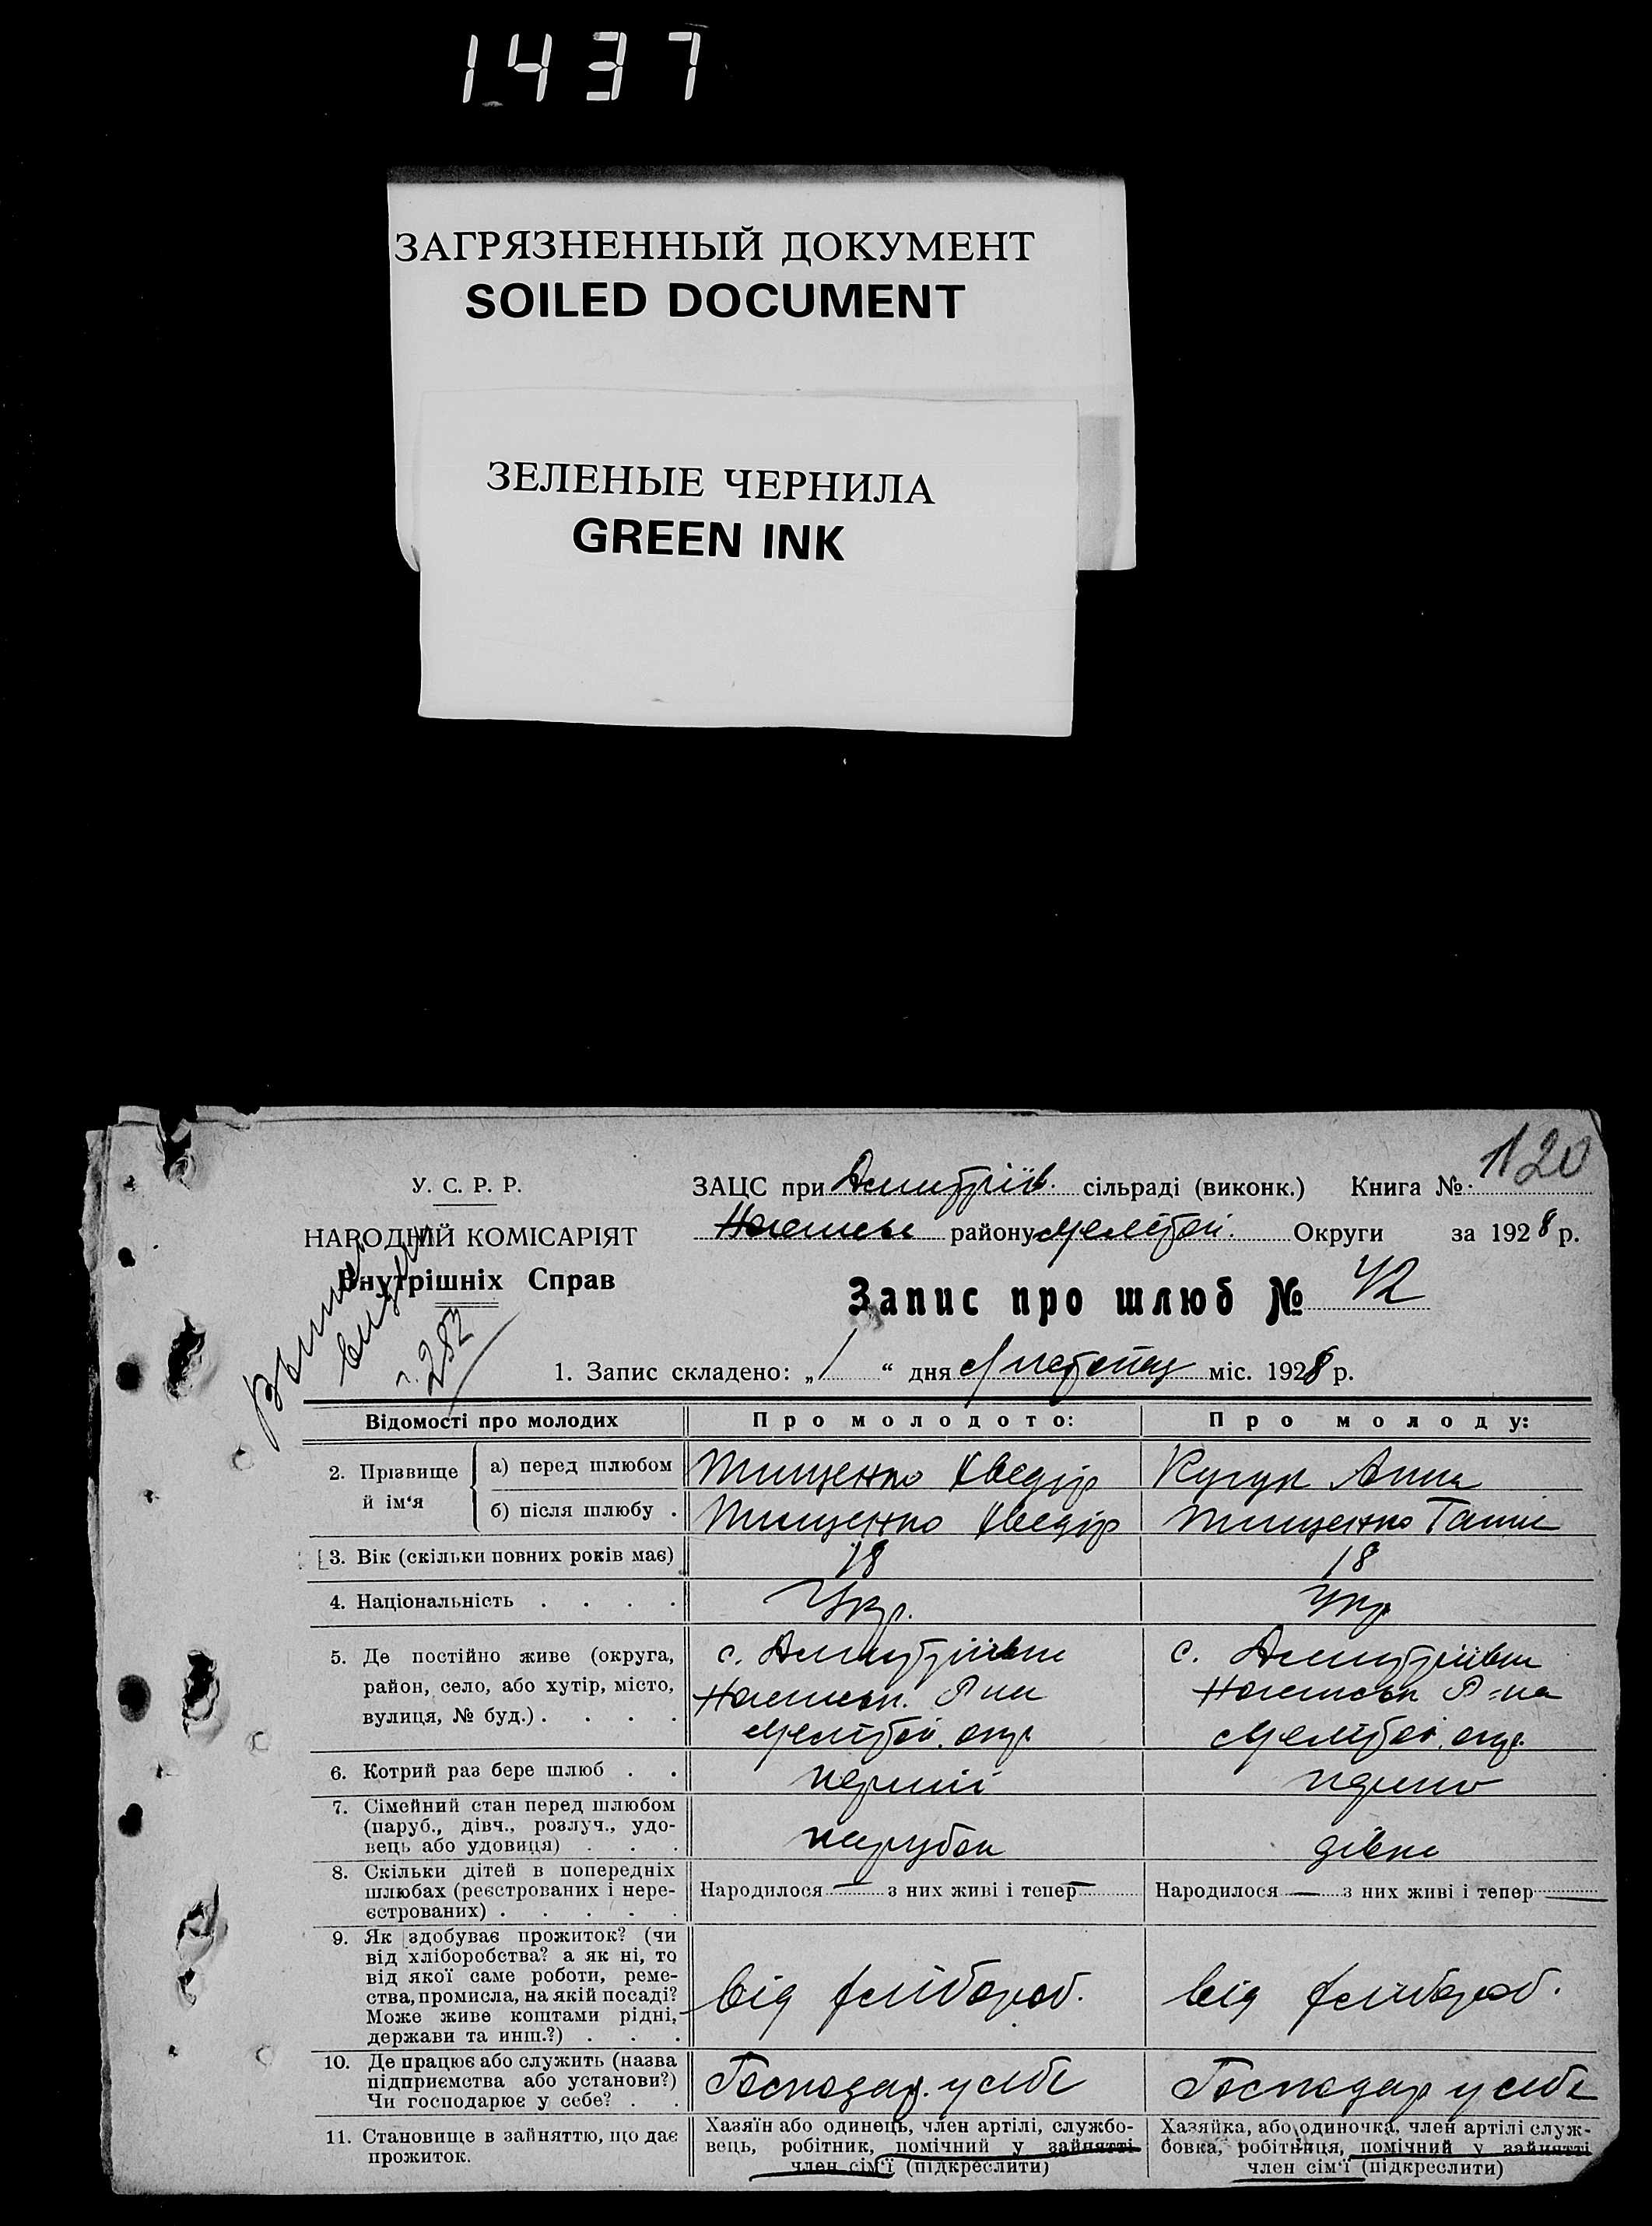 1437
ЗАГРЯЗНЕННЫЙ ДОКУМЕНТ
SOILED DOCUMENT
ЗЕЛЕНЫЕ ЧЕРНИЛА
GREEN INK
120
У. С. Р. Р. ЗАЦС при Дмитріїв. сільраді (виконк.) Книга №
НАРОДНІЙ КОМІСАРІЯТ району Мелітоп. Округи за 1928 р.
Внутрішніх Справ
Запис про шлюб № 42
282
1. Запис складено: „1“ дня Листопад міс. 1928 р.
Відомості про молодих Про молодого: Про молоду:
2. Прізвище й ім‘я
а) перед шлюбом Тищенко Хведір Анна
б) після шлюбу . Тищенко Хведір Тищенко Ганна
3. Вік (скільки повних років має) 18 18
4. Національність . . . . Укр. Укр
5. Де постійно живе (округа, с. Дмитріївка с. Дмитріївка
район, село, або хутір, місто, Р-на Р-на
вулиця, № буд.) . . . . Мелітоп. окр. Мелітоп. окр.
6. Котрий раз бере шлюб . . перший перший
7. Сімейний стан перед шлюбом
(паруб., дівч., розлуч., удо-
вець або удовиця) . . . парубок дівка
8. Скільки дітей в попередніх
шлюбах (реєстрованих і нере- Народилося — з них живі і тепер — Народилося — з них живі і тепер —
єстрованих) . . . . .
9. Як здобуває прожиток? (чи
від хліборобства? а як ні, то
від якої саме роботи, реме-
ства, промисла, на якій посаді? від хлібороб. від хлібороб.
Може живе коштами рідні,
держави та инш.?) . . .
10. Де працює або служить (назва
підприємства або установи?) Господар. у себе Господар у себе
Чи господарює у себе? . .
11. Становище в зайняттю, що дає
прожиток.
Хазяїн або одинець, член артілі, службо-
вець, робітник, помічний у зайнятті
член сім‘ї (підкреслити)
Хазяйка, або одиночка, член артілі служ-
бовка, робітниця, помічний у зайнятті
член сім‘ї (підкреслити)